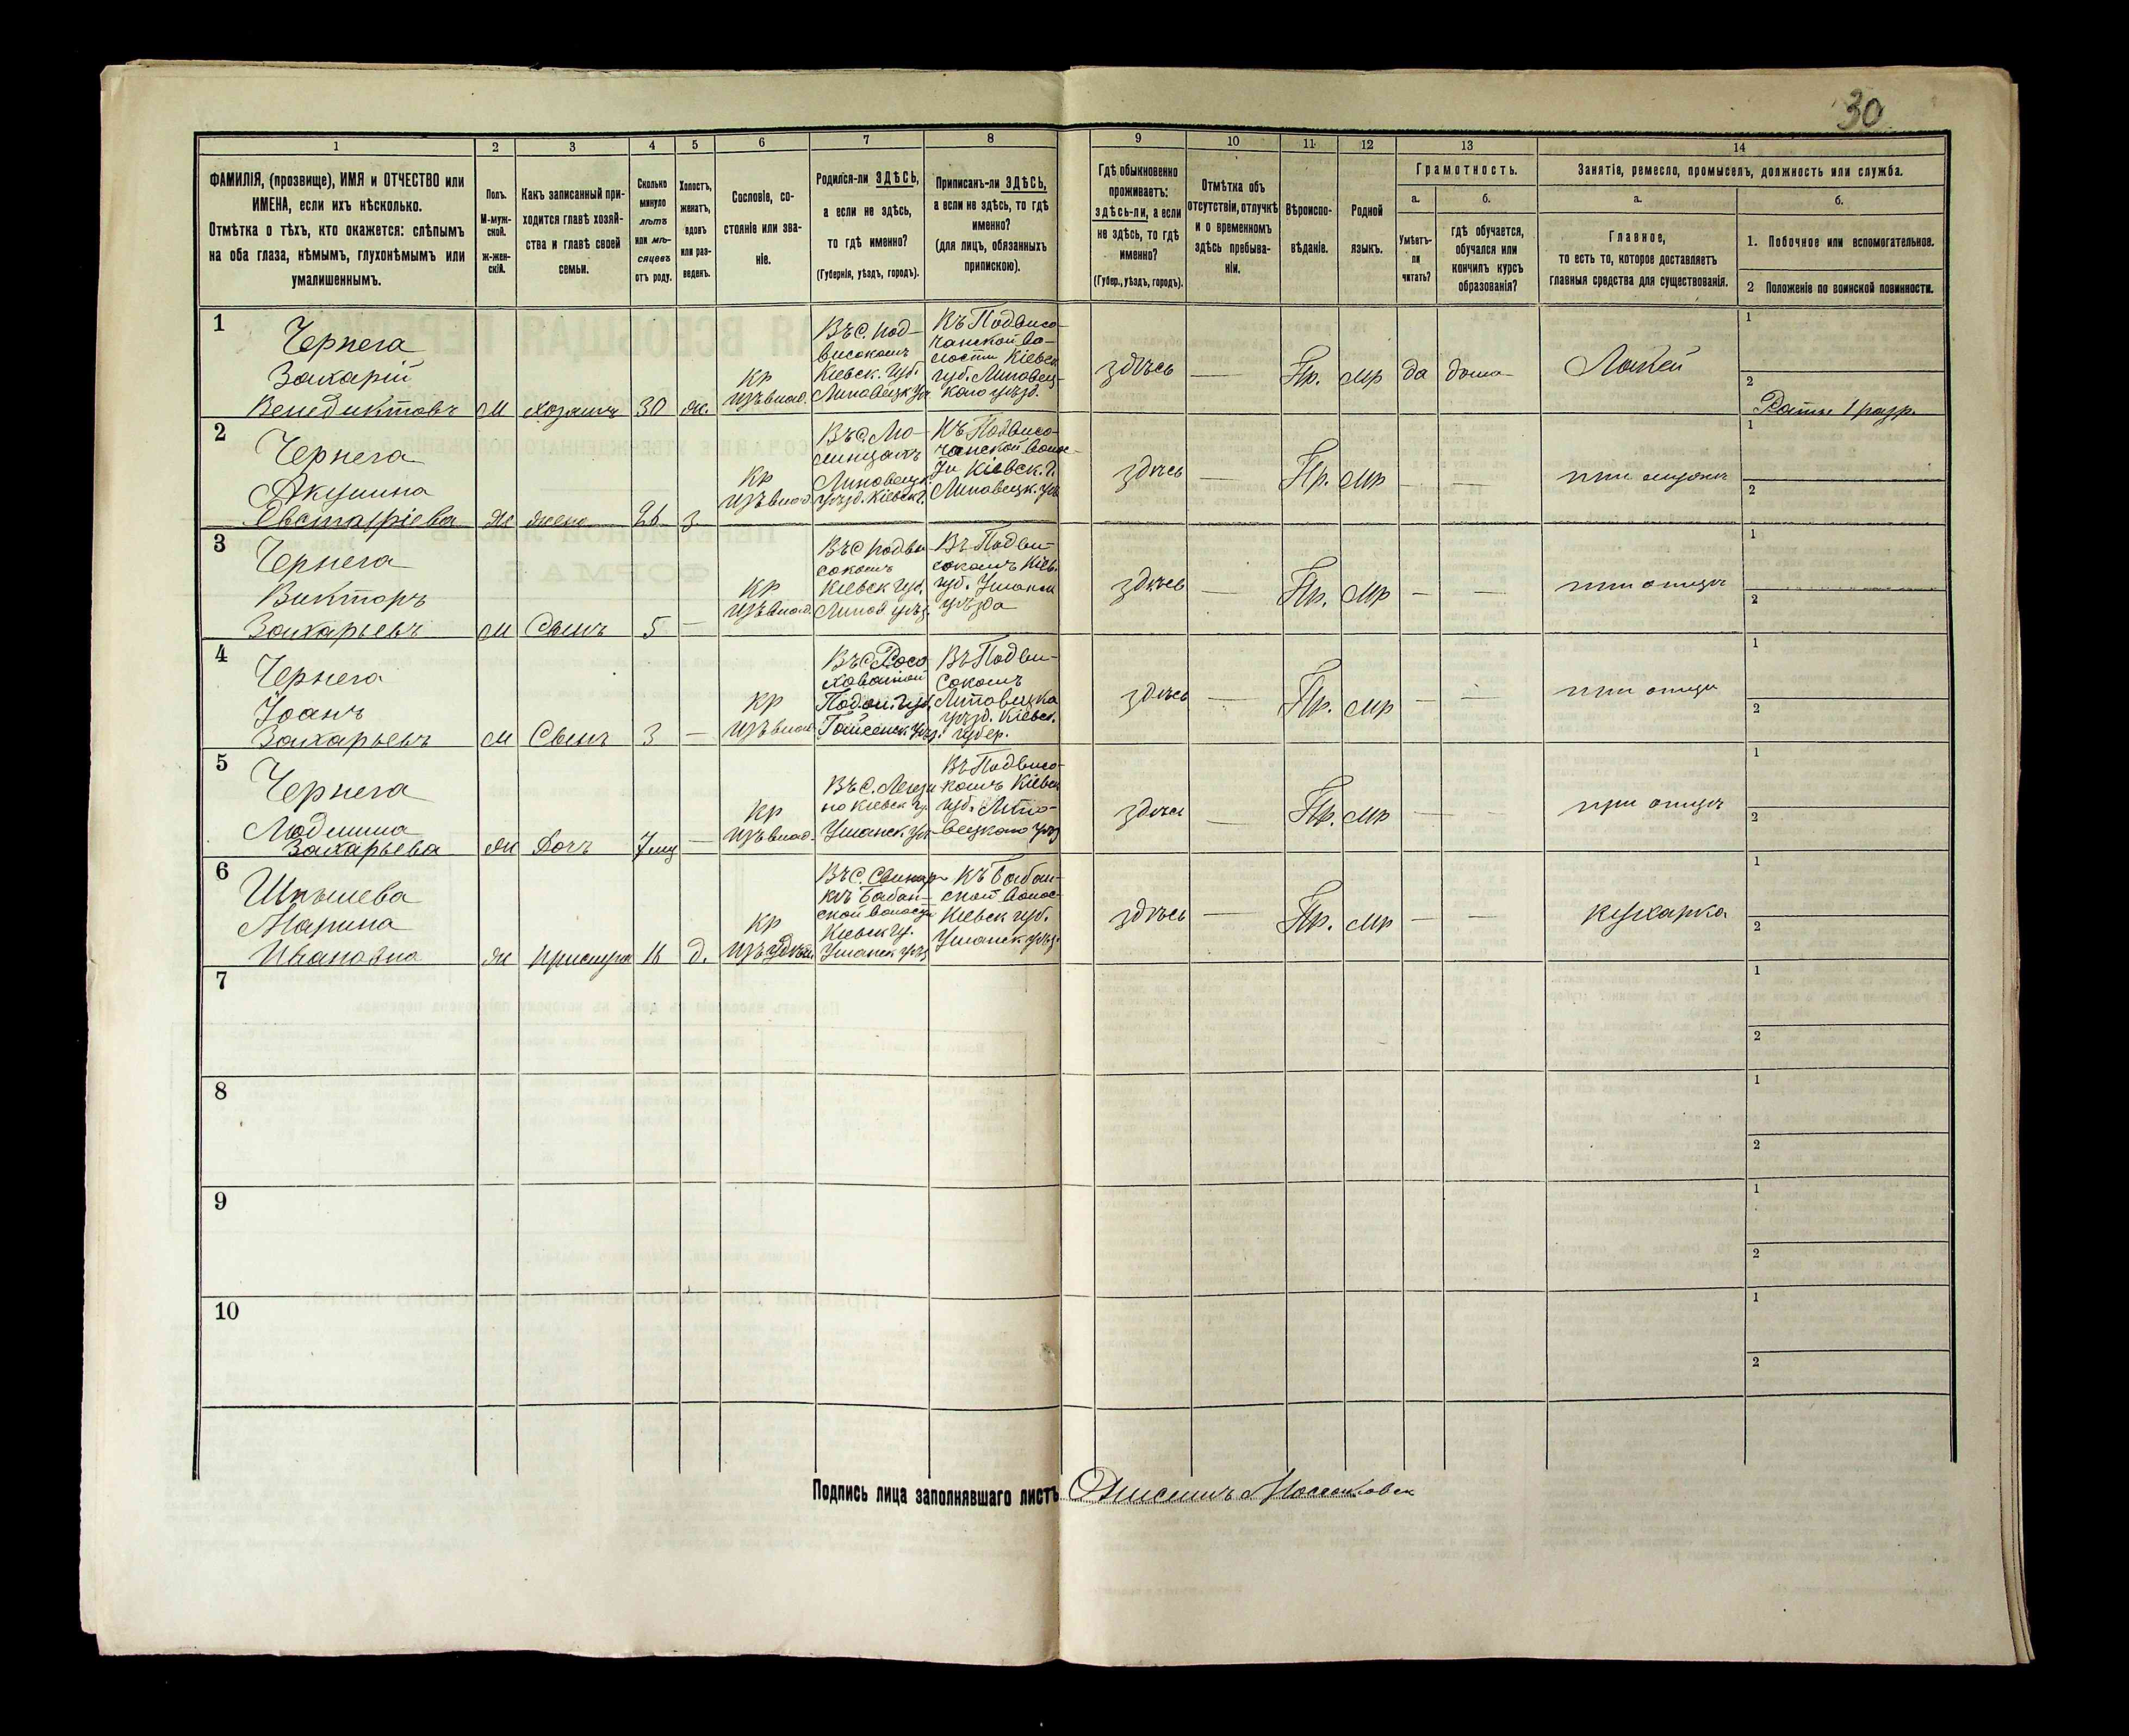 30
1 2 3 4 5 6 7 8 9 10 11 12 13 14
ФАМИЛІЯ, (прозвище), ИМЯ и ОТЧЕСТВО или
ИМЕНА, если ихъ нѣсколько.
Отмѣтка о тѣхъ, кто окажется: слѣпымъ
на оба глаза, нѣмымъ, глухонѣмымъ или
умалишеннымъ.
Полъ.
М-муж-
ской.
ж-жен-
скій.
Какъ записанный при-
ходится главѣ хозяй-
ства и главѣ своей
семьи.
Сколько
минуло
лѣтъ
или мѣ-
сяцевъ
отъ роду.
Холостъ,
женатъ,
вдовъ
или раз-
веденъ.
Сословіе, со-
стояніе или зва-
ніе.
Родился-ли ЗДѢСЬ,
а если не здѣсь,
то гдѣ именно?
(Губернія, уѣздъ, городъ).
Приписанъ-ли ЗДѢСЬ,
а если не здѣсь, то гдѣ
именно?
(для лицъ, обязанныхъ
припискою).
Гдѣ обыкновенно
проживаетъ:
здѣсь-ли, а если
не здѣсь, то гдѣ
именно?
(Губер., уѣздъ, городъ).
Отмѣтка объ
отсутствіи, отлучкѣ
и о временномъ
здѣсь пребыва-
ніи.
Вѣроиспо-
вѣданіе.
Родной
языкъ.
Грамотность.
а.
Умѣетъ-
ли
читать?
б.
гдѣ обучается,
обучался или
кончилъ курсъ
образованія?
Занятіе, ремесло, промыселъ, должность или служба.
а.
Главное,
то есть то, которое доставляетъ
главныя средства для существованія.
б.
1. Побочное или вспомогательное.
2 Положеніе по воинской повинности.
1
Чернега
Захарій
Венедиктовъ
М
хозяинъ
30
ж.
кр
изъ влад.
Въ С. под-
високомъ
Кіевск. губ.
Липовецк у
Къ Подвисо-
чанской во-
лости Кіевск
губ. Липовец-
каго уѣзд.
здѣсь
—
Пр.
мр
да
дома
Лакей
1
2
Ратн. 1 разр.
2
Чернега
Акулина
Евстафіева
ж
жена
26
з
кр
изъ влад
Въ С.
Липовецк
уѣзд. Кіевск г.
Къ Подвисо-
чанской волос-
ти Кіевск. г.
Липовецк. уѣз
здѣсь
—
Пр.
мр
—
—
при мужѣ
1
2
3
Чернега
Викторъ
Захарьевъ
М
Сынъ
5
—
кр
изъ влад.
Въ С подви
сокомъ
Кіевск губ.
Липов уѣз.
Въ Подви-
сокомъ Кіев.
губ. Уманск
уѣзда
здѣсь
—
Пр.
мр
—
—
при отцѣ
1
2
4
Чернега
Іоанъ
Захарьевъ
М
Сынъ
3
—
кр
изъ влад
Въ С Росо
ховатой
Подол. губ.
Гайсенск. уѣз.
Въ Подви-
сокомъ
Липовецка
уѣзд. Кіевск.
губер.
здѣсь
—
Пр.
мр
—
—
при отцѣ
1
2
5
Чернега
Людмила
Захарьева
ж
Дочь
7 мц
—
кр
изъ влад.
Въ С.
но Кіевск г.
Уманск уѣ
Въ Подвисо-
комъ Кіевск
губ. Липо-
вецкаго уѣз
здѣсь
—
Пр.
мр
—
—
при отцѣ
1
2
6
Марина
Ивановна
ж
прислуга
16
д.
кр
Въ С.
къ Бабан-
ской волости
Кіевск г.
Уманск уѣз
Къ Бабан-
ской волос-
Кіевск губ.
Уманск уѣз.
здѣсь
—
Пр.
мр
—
—
кухарка
1
2
7
1
2
8
1
2
9
1
2
10
1
2
Подпись лица заполнявшаго листъ